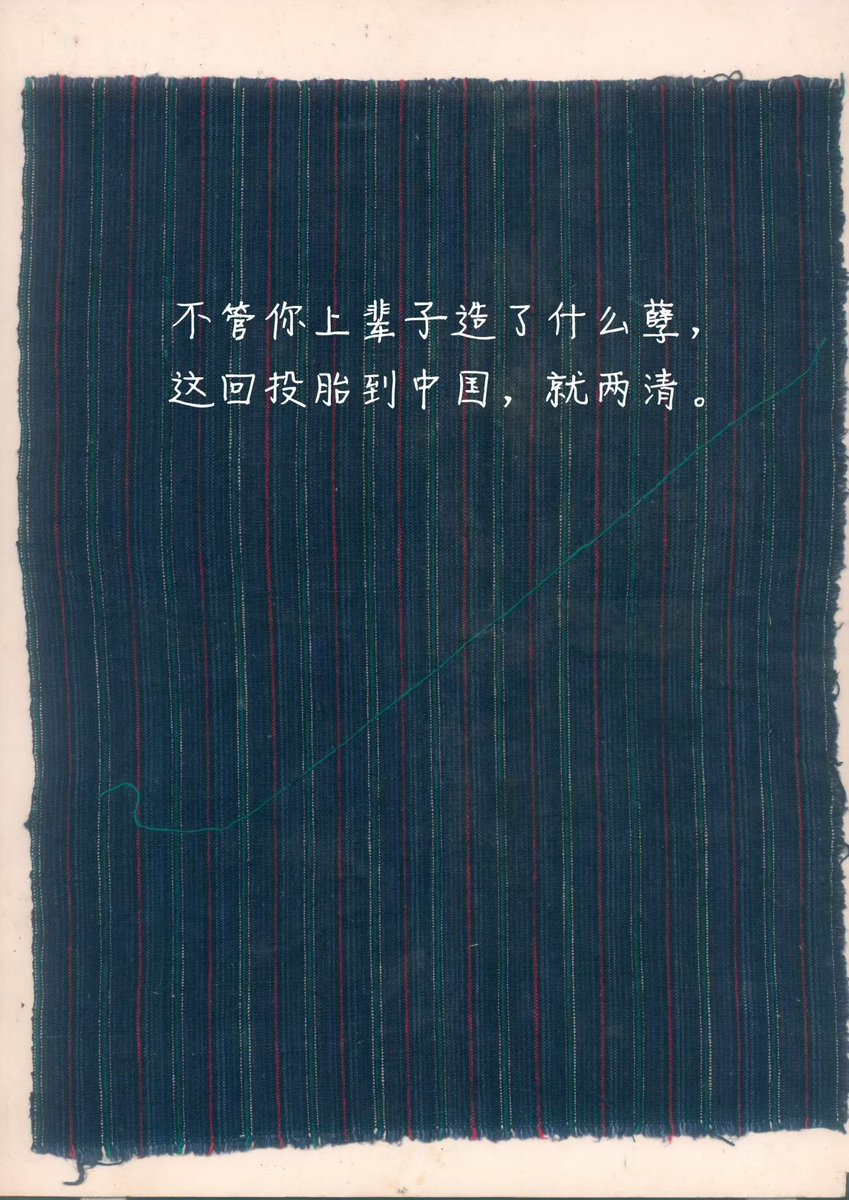 不管你上辈子造了什么孽，
这回投胎到中国，就两清。